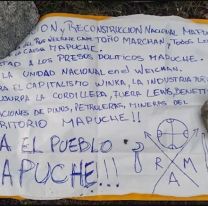 ON, Y RECONSTRUCCION NACIONAL MAPU
TOÑO MARCHAN, TODOS LO
LA CAUSA MAPUCHE.
TAD A LOS PRESOS POLITICOS MAPUCHE.
LA UNIDAD NACIONAL en el WEICHAN.
EL CAPITALISMO WINKA, LA INDUSTRIA
USURPA LA CORDILLERA, FUERA LEWIS, BENETT
CIONES DE PINOS, PETROLERAS, MINERAS DEL
RITORIO MAPUCHE!!
A EL PUEBLO
APUCHE!!!
R A
M